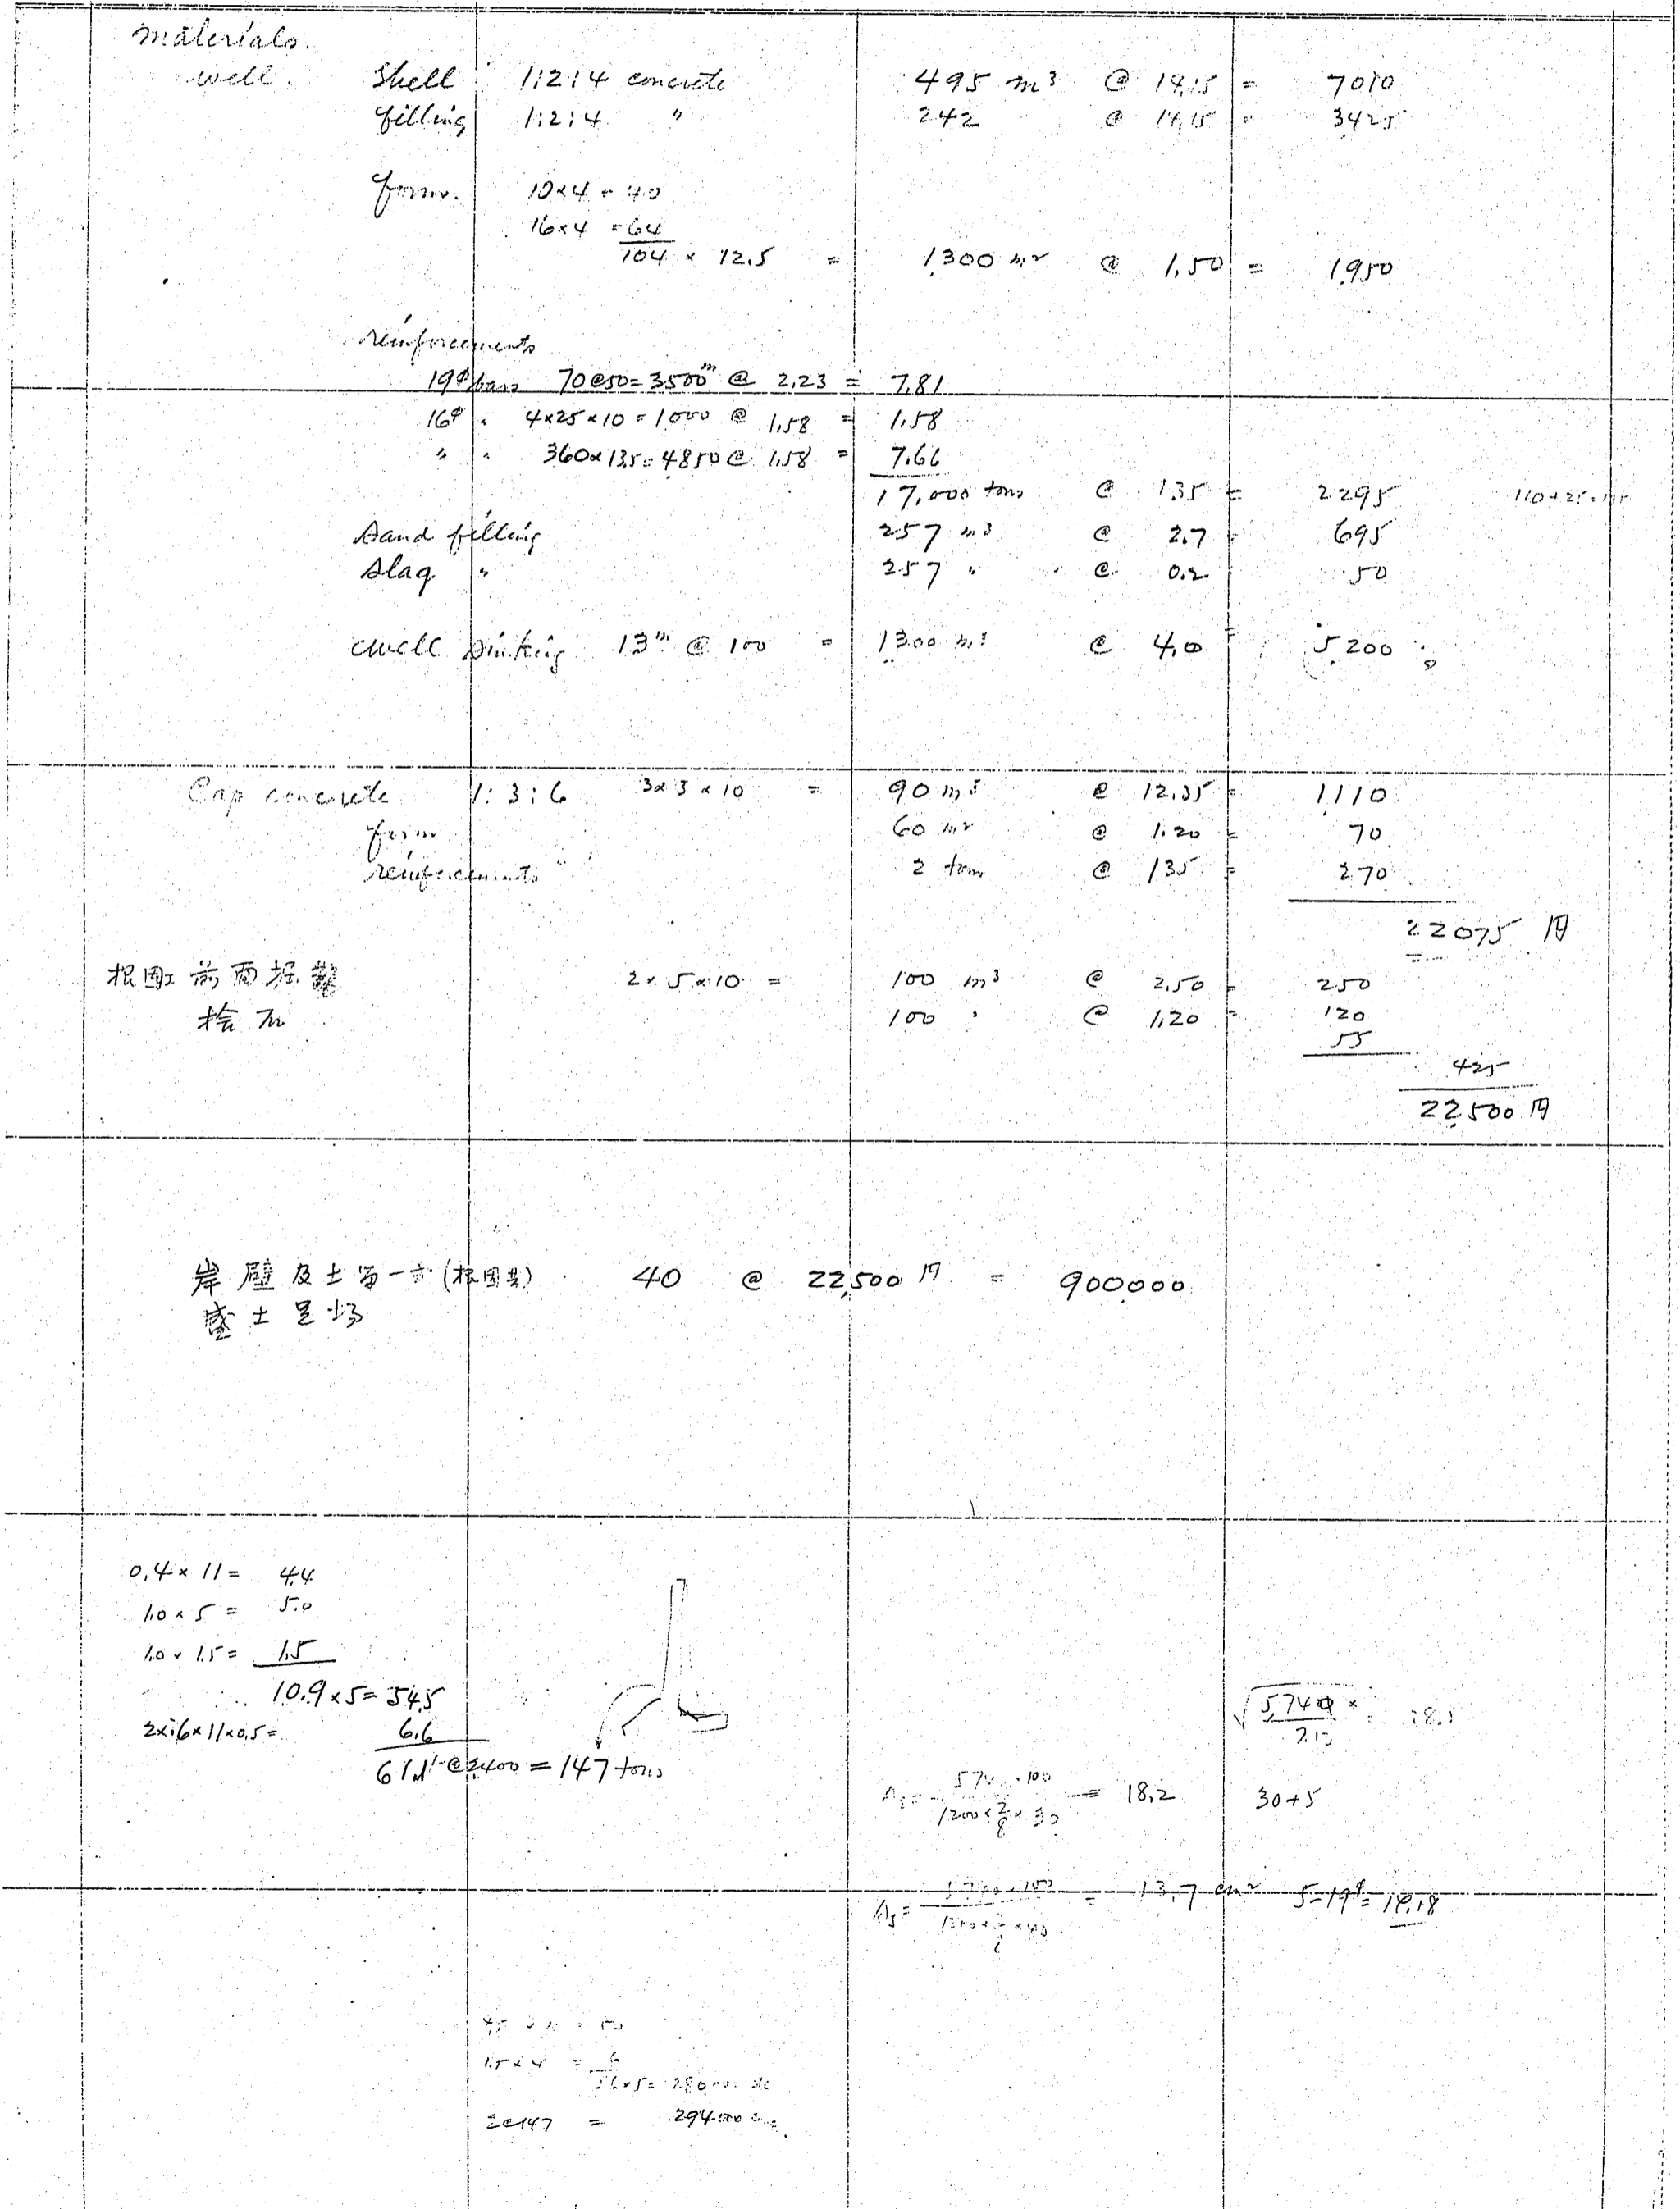 Materials.
well. Shell 1:2:4 concrete 495 m³ @ 14.15 = 7010
filling 1:2:4 " 242 @ 14.15 = 3425
forms. 10×4 = 40
16×4 = 64
104 × 12.5 = 1300 m² @ 1.50 = 1950
reinforcements
19φ bars 70@50=3500m @ 2.23 = 7.81
16φ " 4×25×10=1000 @ 1.58 = 1.58
" " 360×13.5=4850 @ 1.58 = 7.66
17,000 tons @ 135 = 2295
Sand filling 257 m³ @ 2.7 = 695
Slag " 257 " @ 0.2 50
well sinking 13m @ 100 = 1300 m³ @ 4.0 = 5200
Cap concrete 1:3:6 3×3×10 = 90 m³ @ 12.35 = 1110
form 60 m² @ 1.20 = 70
reinforcements 2 tons @ 135 = 270
22075 円
根固前面掘鑿 2×5×10 = 100 m³ @ 2.50 = 250
捨石 100 " @ 1.20 = 120
55
425
22,500 円
岸壁及土留一式(根固共) 40 @ 22,500円 = 900,000
盛土足場
0.4×11= 4.4
1.0×5= 5.0
1.0×1.5= 1.5
10.9×5=54.5
2×.6×11×0.5= 6.6
61.1 @2400 = 147 tons
= 18.2 30+5
As = = 13.7 cm² 5-19φ= 14.18
1.5×4 = 6
2@147 = 294